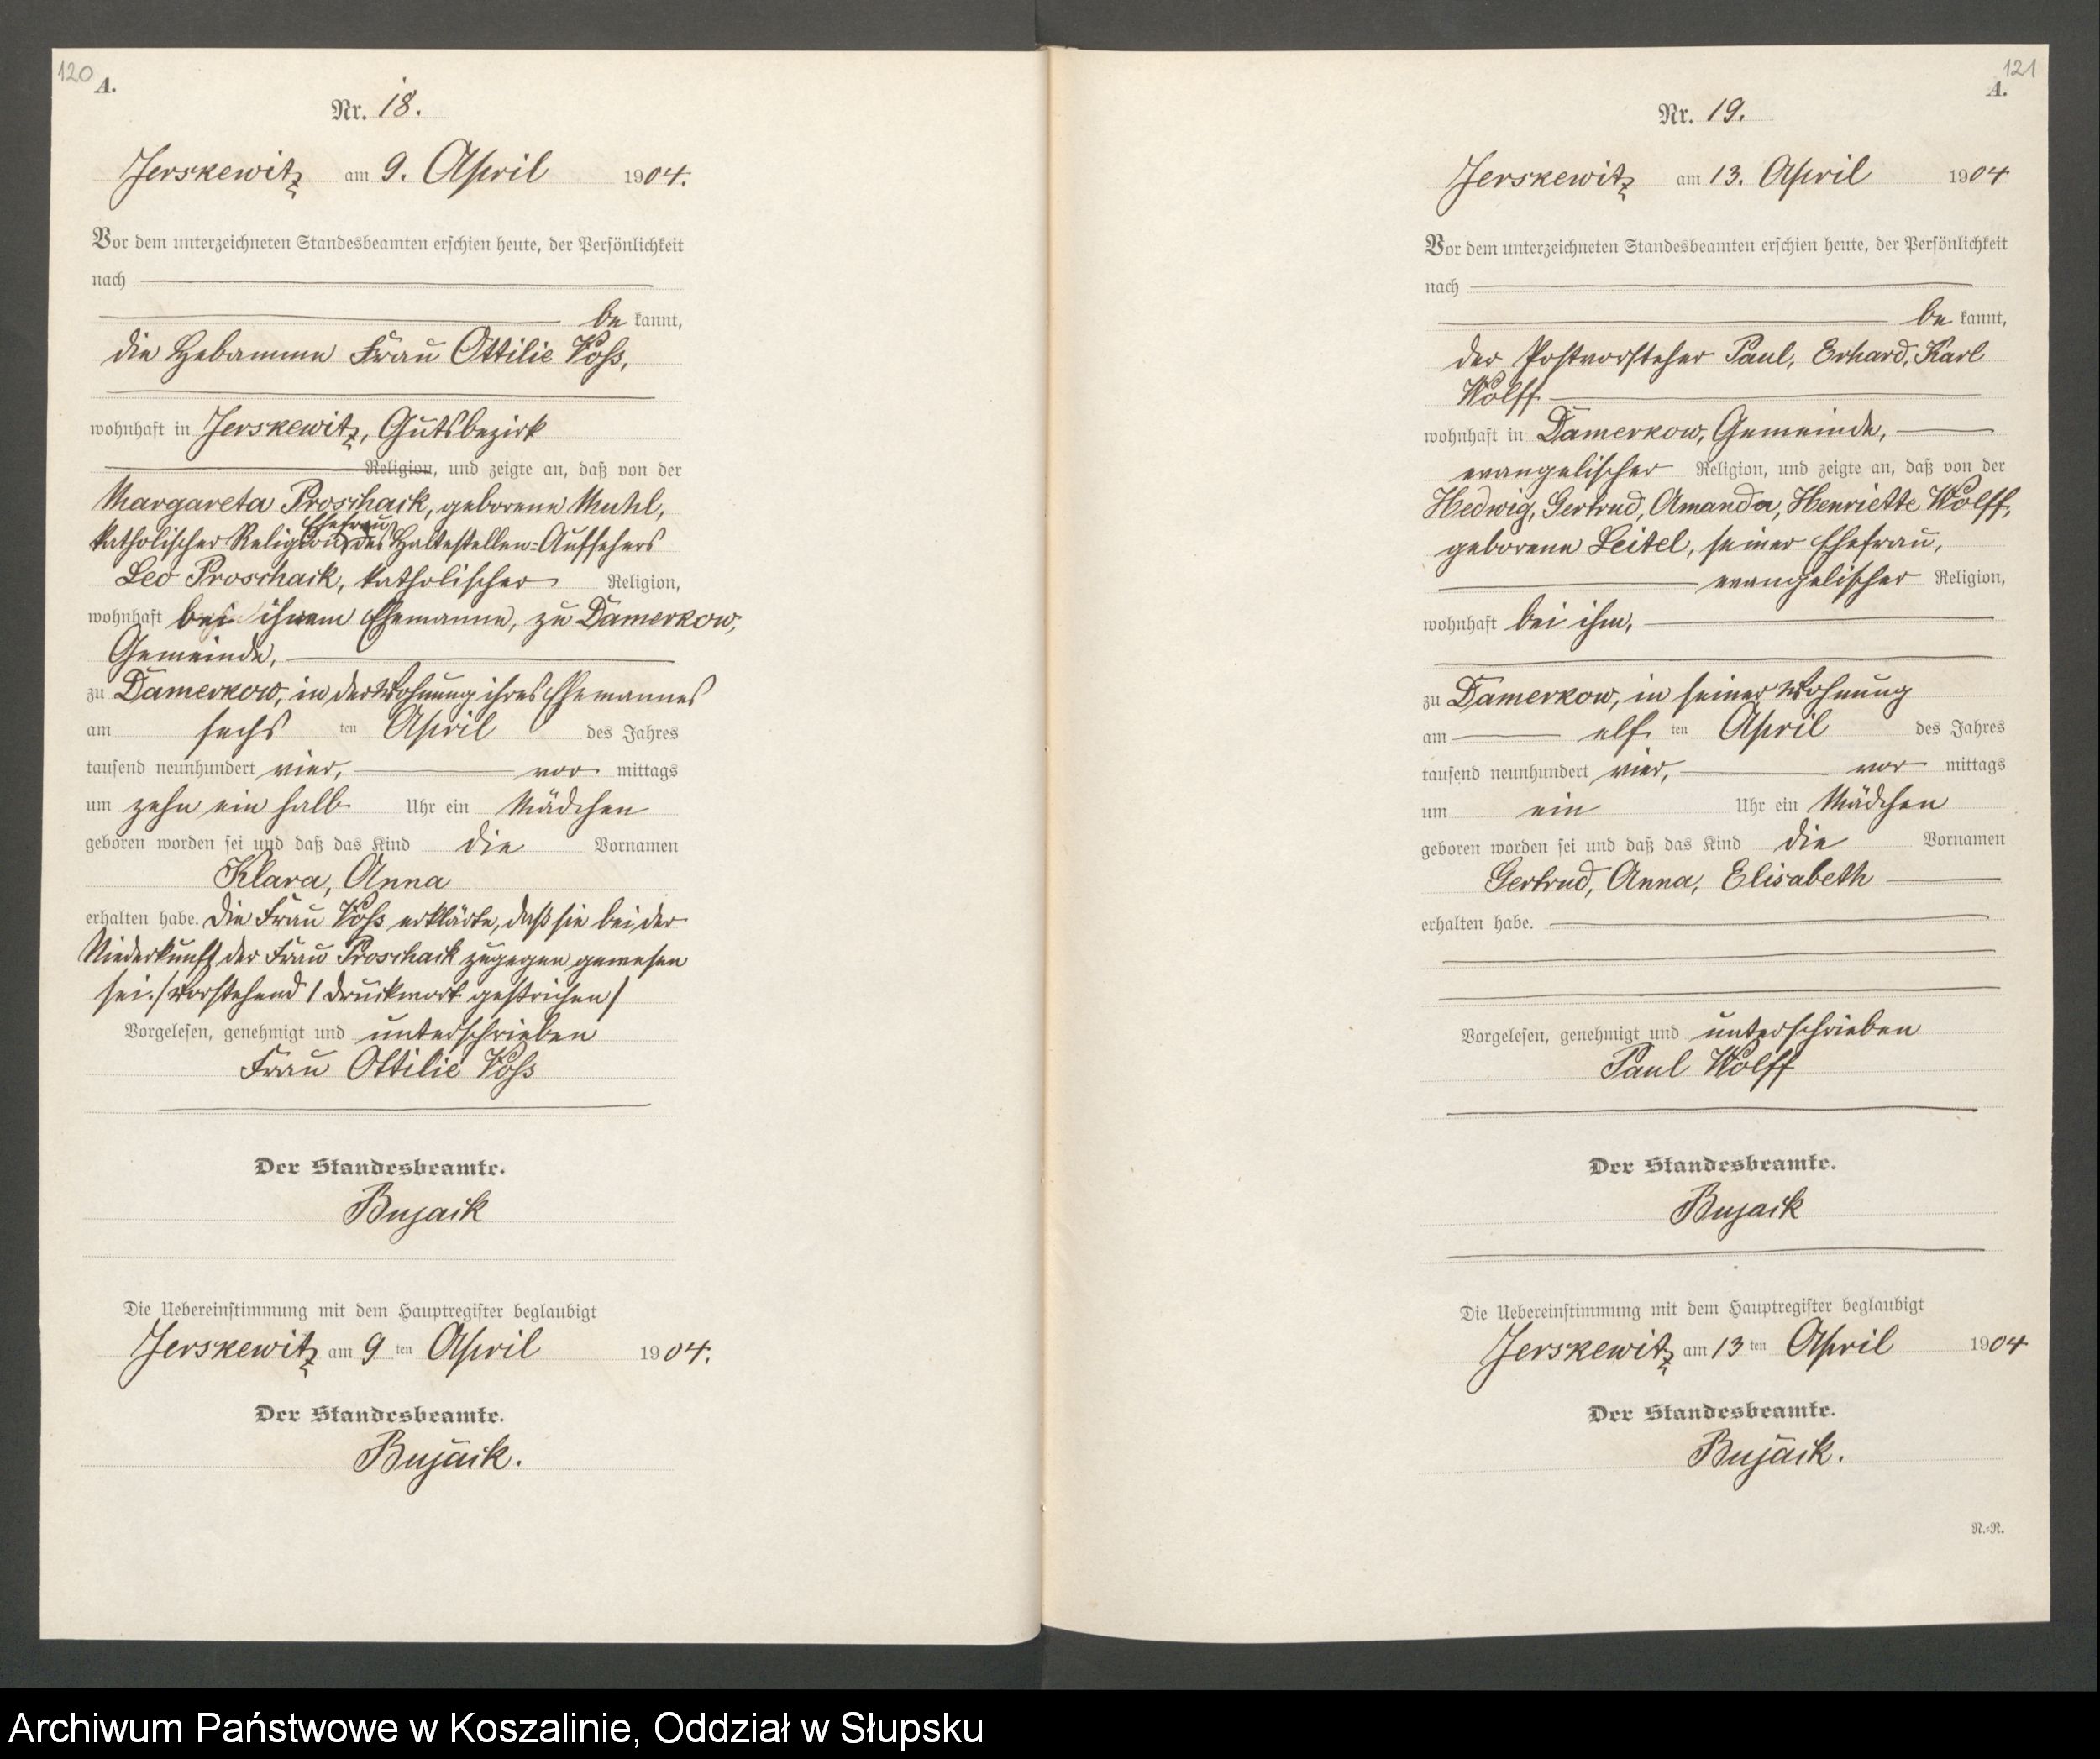 120
A.
Nr. 18.
Jerskewitz am 9. April 1904.
Vor dem unterzeichneten Standesbeamten erschien heute, der Persönlichkeit
nach
be kannt,
die Hebamme Frau Ottilie Voß,
wohnhaft in Jerskewitz, Gutsbezirk
Religion, und zeigte an, daß von der
Margareta Proschack, geborene Muhl,
Ehefrau
katholischer Religion, des Haltestellen-Aufsehers
Leo Proschack, katholischer Religion,
wohnhaft bei ihrem Ehemanne, zu Damerkow,
Gemeinde,
zu Damerkow, in der Wohnung ihres Ehemannes
am sechs ten April des Jahres
tausend neunhundert vier, vor mittags
um zehn ein halb Uhr ein Mädchen
geboren worden sei und daß das Kind die Vornamen
Klara, Anna
erhalten habe. Die Frau Voß erklärte, daß sie bei der
Niederkunft der Frau Proschack zugegen gewesen
sei. /Vorstehend 1 Druckwort gestrichen/
Vorgelesen, genehmigt und unterschrieben
Frau Ottilie Voß
Der Standesbeamte.
Bujack
Die Uebereinstimmung mit dem Hauptregister beglaubigt
Jerskewitz am 9 ten April 1904.
Der Standesbeamte.
Bujack.
121
A.
Nr. 19.
Jerskewitz am 13. April 1904
Vor dem unterzeichneten Standesbeamten erschien heute, der Persönlichkeit
nach
be kannt,
der Postvorsteher Paul, Erhard, Karl
Wolff
wohnhaft in Damerkow, Gemeinde,
evangelischer Religion, und zeigte an, daß von der
Hedwig, Gertrud, Amanda, Henriette Wolff,
geborene Leitel, seiner Ehefrau,
evangelischer Religion,
wohnhaft bei ihm,
zu Damerkow, in seiner Wohnung
am elf ten April des Jahres
tausend neunhundert vier, vor mittags
um ein Uhr ein Mädchen
geboren worden sei und daß das Kind die Vornamen
Gertrud, Anna, Elisabeth
erhalten habe.
Vorgelesen, genehmigt und unterschrieben
Paul Wolff
Der Standesbeamte.
Bujack
Die Uebereinstimmung mit dem Hauptregister beglaubigt
Jerskewitz am 13 ten April 1904
Der Standesbeamte.
Bujack.
N.=N.
Archiwum Państwowe w Koszalinie, Oddział w Słupsku